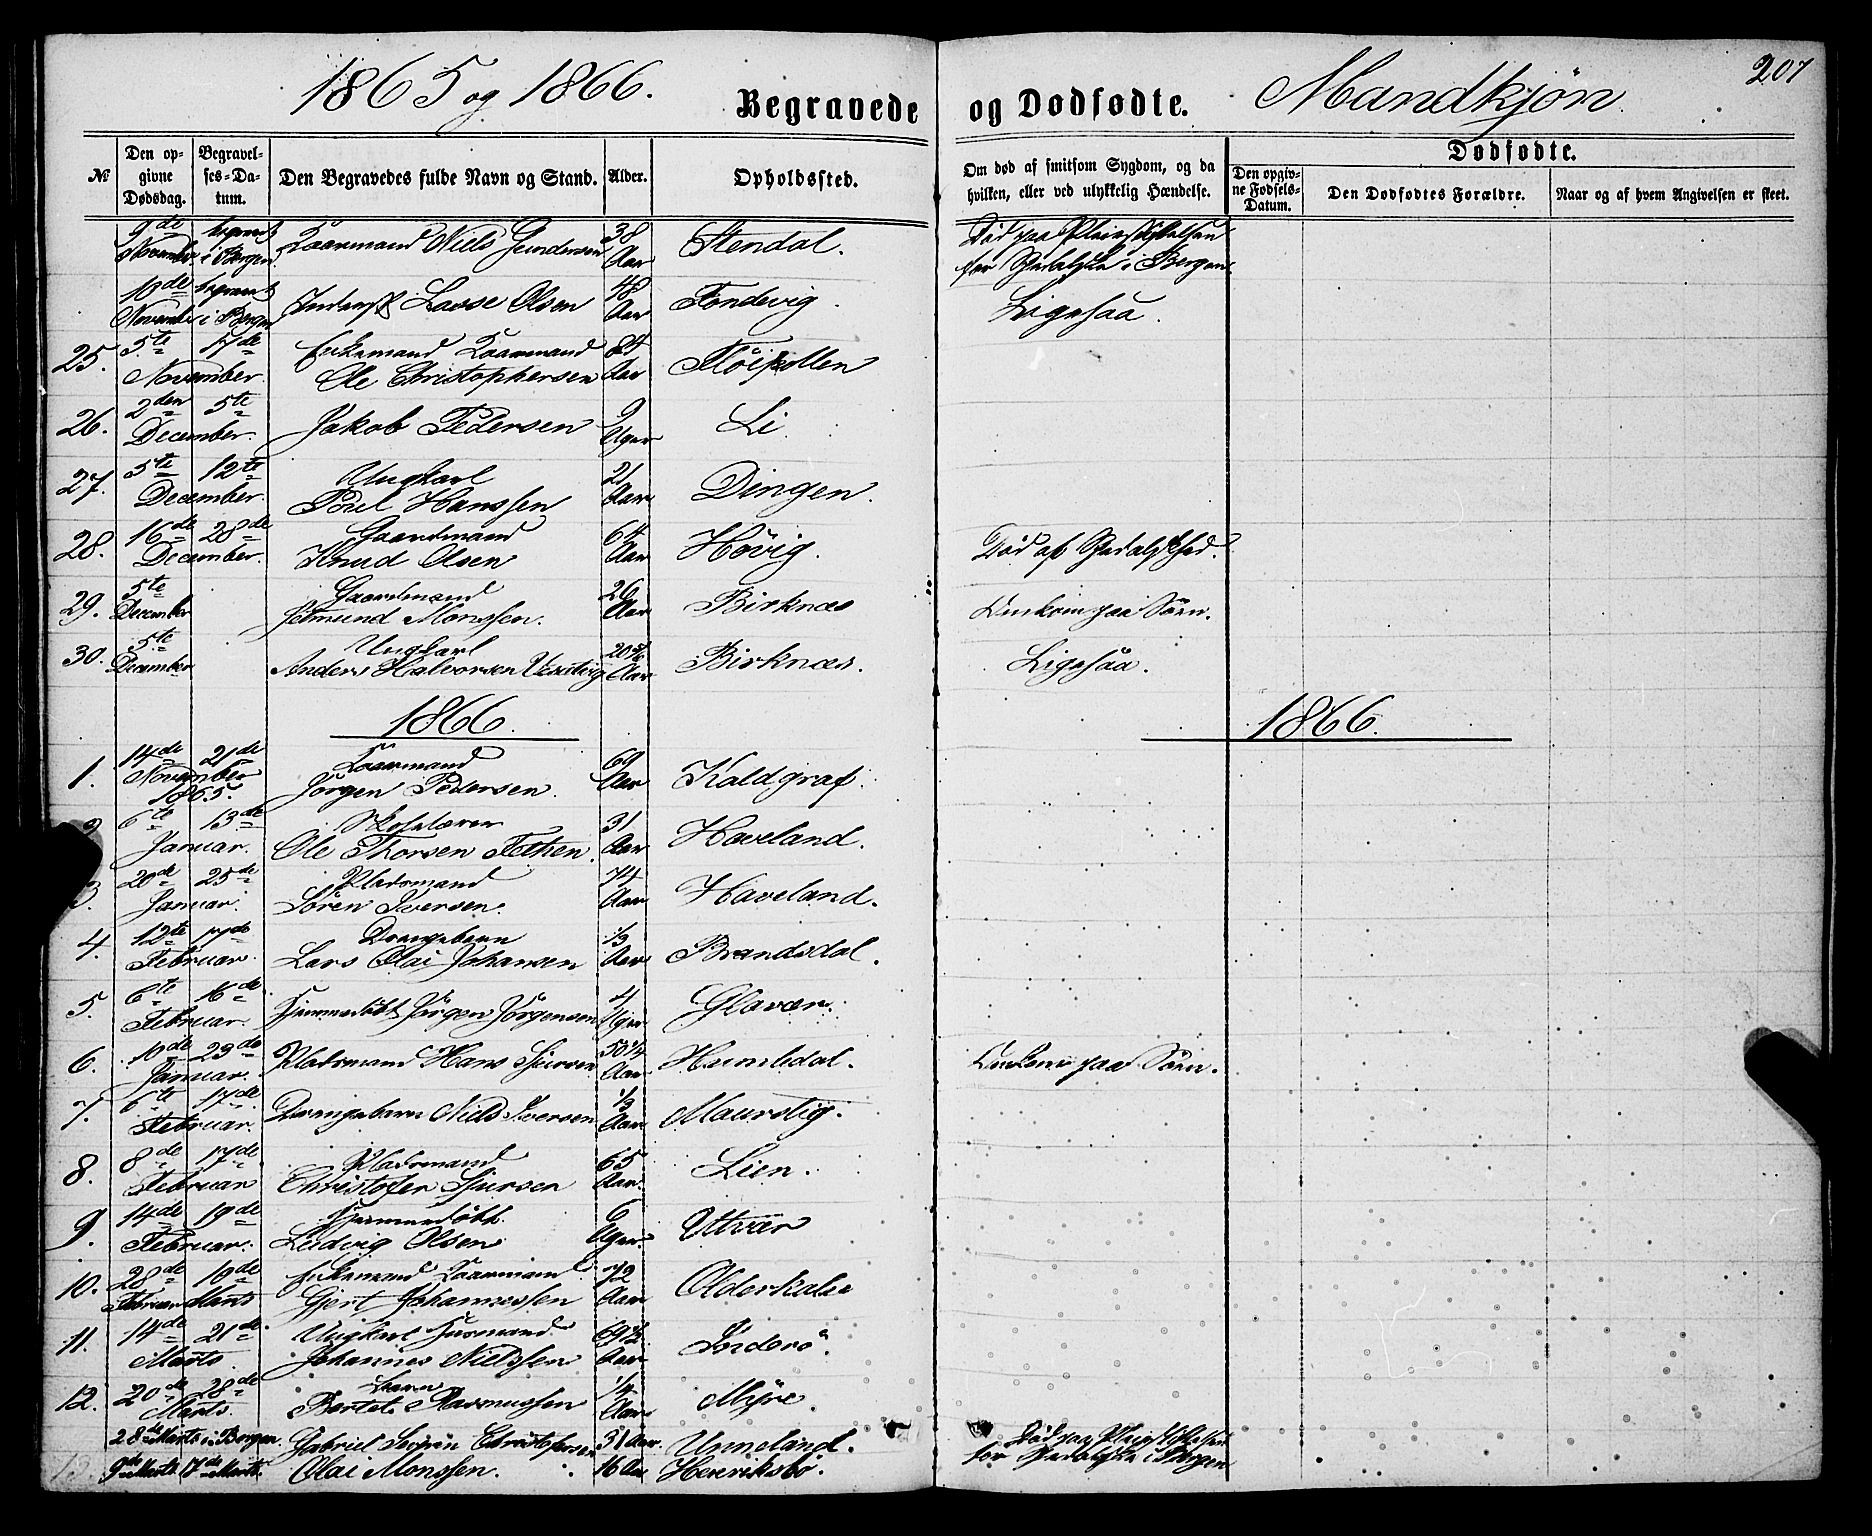 1865 og 1866.
Begravede og Dødfødte.
Mandkjøn
207
№
Den opgivne Dødsdag.
Begravelses-Datum.
Den Begravedes fulde Navn og Stand.
Alder.
Opholdssted.
Om død af smitsom Sygdom, og da hvilken, eller ved ulykkelig Hændelse.
Dødfødte.
Den opgivne Fødsels-Datum.
Den Dødfødtes Forældre.
Naar og af hvem Angivelsen er skeet.
9de November begravet i Bergen Kaarmand Niels Gundersen 38 Aar Stendal. Død paa Pleiestiftelsen for Spedalske i Bergen
10de November begravet i Bergen Lasse Olsen 48 Aar Tondevig. Ligesaa.
25. 5te 17de November Enkemand Kaarmand Ole Christophersen 84 Aar Flöipollen
26. 2den 5te December. Jakob Pedersen 9 Uger Li.
27. 5te 12te December. Ungkarl Poul Hanssen 21 Aar Dingen.
28. 16de 28de December. Gaardmand Knud Olsen 64 Aar Hövig. Död af Spedalskhed.
29. 5te December Gaardmand Jetmund Monssen. 26 Aar Birknæs Omkom paa Söen.
30. 5te December Ungkarl Anders Halvorsen 20 Aar Birknæs. Ligesaa.
1866.
1866.
1. 14de 21de November 1865. Kaarmand Jörgen Pedersen. 69 Aar Koldgraf.
2 6te 13de Januar. Skolelærer Ole Thorsen 31 Aar Haveland.
3. 20de 25de Januar. Pladsmand Sören Iversen. 74 Aar Haveland.
4. 12te 17de Februar. Drengebarn Lars Olai Johansen 1/3 Aar Brandsdal.
5. 6te 16de Februar. Hjemmedöbt Jörgen Jörgensen 4 Uger Glavær.
6. 10de 23de Januar. Pladsmand Hans Sjursen 50 1/4 Aar Humledal. Omkom paa Söen.
7. 6te 17de Februar. Drengebarn Niels Iversen 1/3 Aar Maurstig.
8. 8de 17de Februar Pladsmand Christofer Sjursen 65 Aar. Lien.
9. 14de 19de Februar. Hjemmedöbt. Ludvig Olsen 6 Uger. Utvær
10. 28de Februar 10de Marts Enkemand Kaarmand Gjert Johannessen 72 Aar Olderkalve
11. 14de 21de Marts. Ungkarl Huusmand. Johannes Nielssen 69 1/2 Aar Inderö.
12. 20de 28de Marts. Barn Bertel Rasmussen 1/4 Aar Myre.
28de Marts i Bergen. Gabriel Severin Christofersen 31 Aar. Unneland. Död paa Pleiestiftelsen for Spedalske i Bergen
13. 9de Marts 17de Marts. Olai Monssen. 16 Aar Henriksbö.